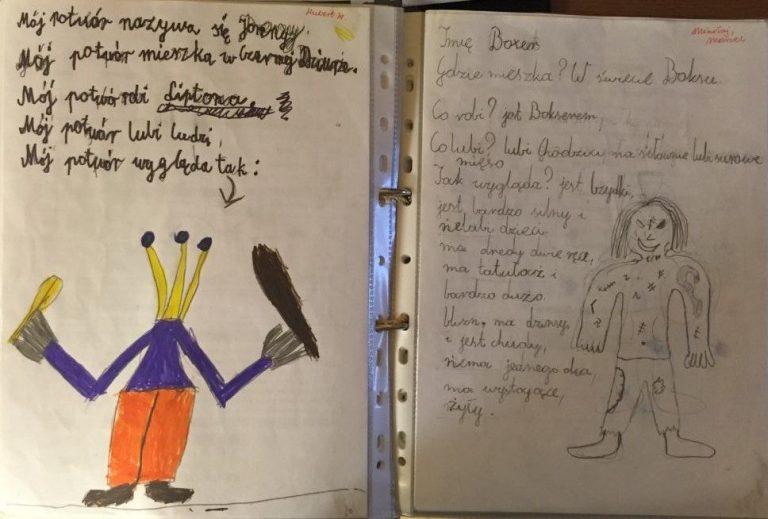 Hubert M.
Mój potwór nazywa się
Mój potwór mieszka w Czarnej Dziurze.
Mój potwór robi Liptona
Mój potwór lubi ludzi,
Mój potwór wygląda tak:
Mikołaj,
Imię Boxer
Gdzie mieszka? W świecie Boksu.
Co robi? jest Bokserem,
Co lubi? lubi chodzić na siłownie lubi surowe
mięso
Jak wygląda? jest brzydki,
jest bardzo silny i
nielubi dzieci
ma dredy
ma tatuaż i
bardzo dużo
blizn, ma dziury
i jest chudy,
niema jednego oka,
ma wystające,
żyły.